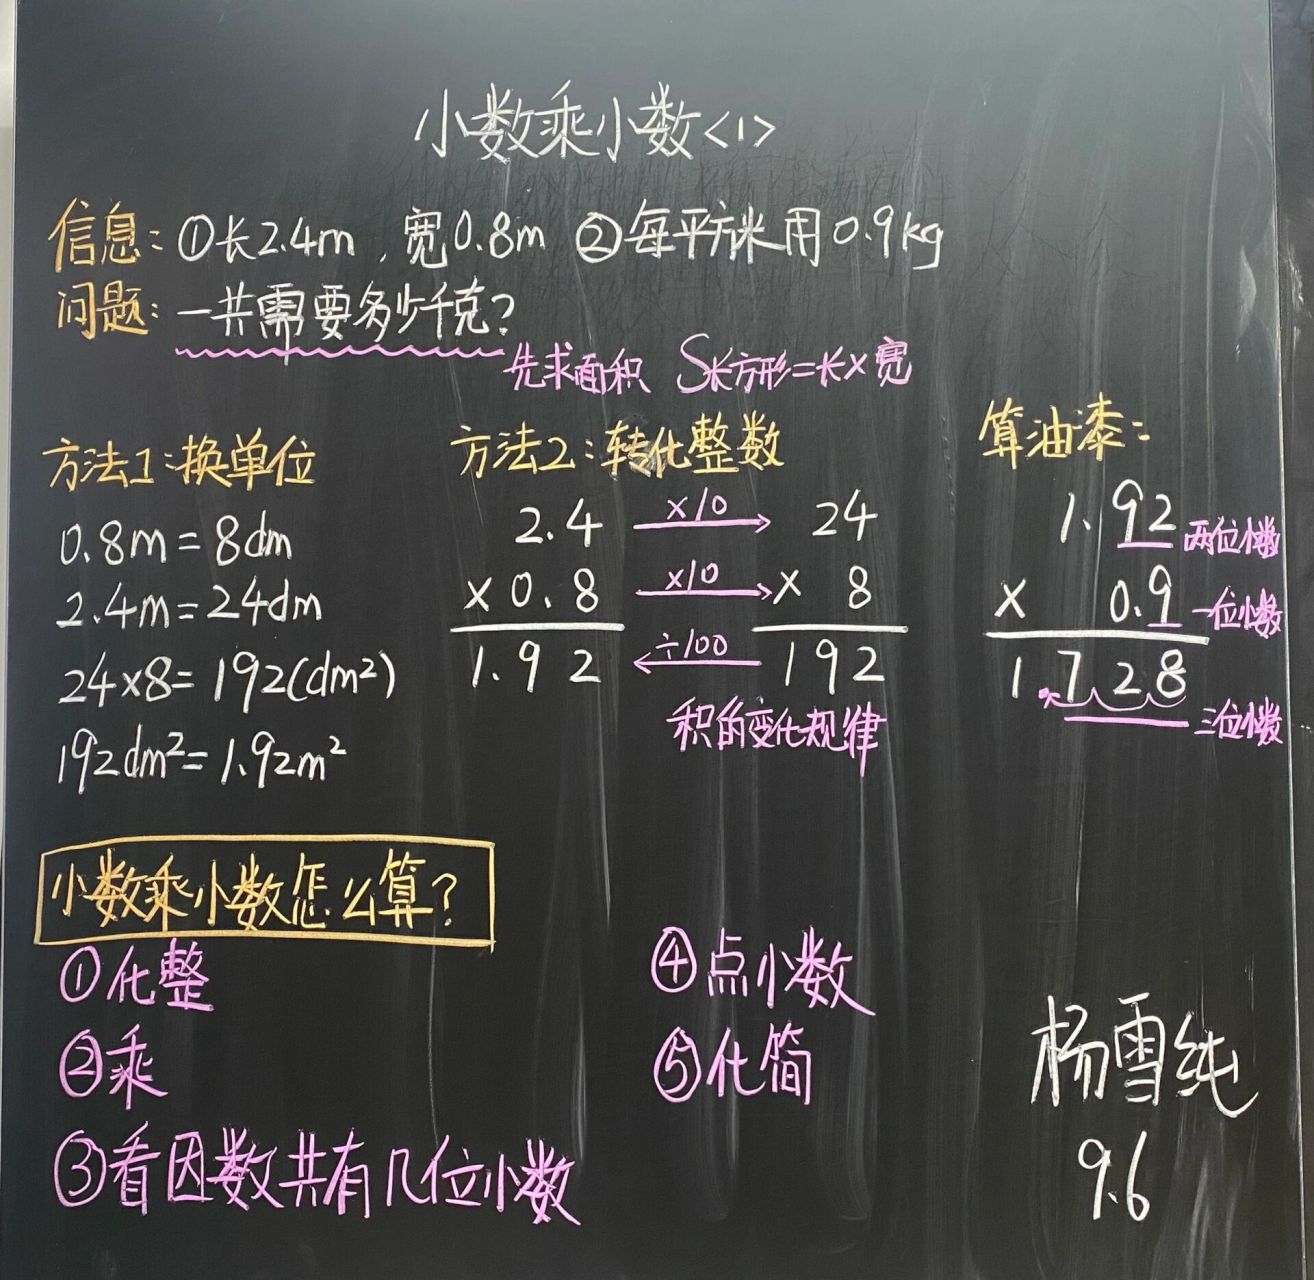 小数乘小数<1>
信息:①长2.4m,宽0.8m ②每平方米用0.9kg
问题:一共需要多少千克?
先求面积 S长方形=长×宽
方法1:换单位
0.8m=8dm
2.4m=24dm
24×8=192(dm²)
192dm²=1.92m²
方法2:转化整数
2.4 ×10 24
×0.8 ×10 × 8
1.92 ÷100 192
积的变化规律
算油漆:
1.92 两位小数
× 0.9 一位小数
1.728 三位小数
小数乘小数怎么算?
①化整
②乘
③看因数共有几位小数
④点小数
⑤化简
杨雪纯
9.6